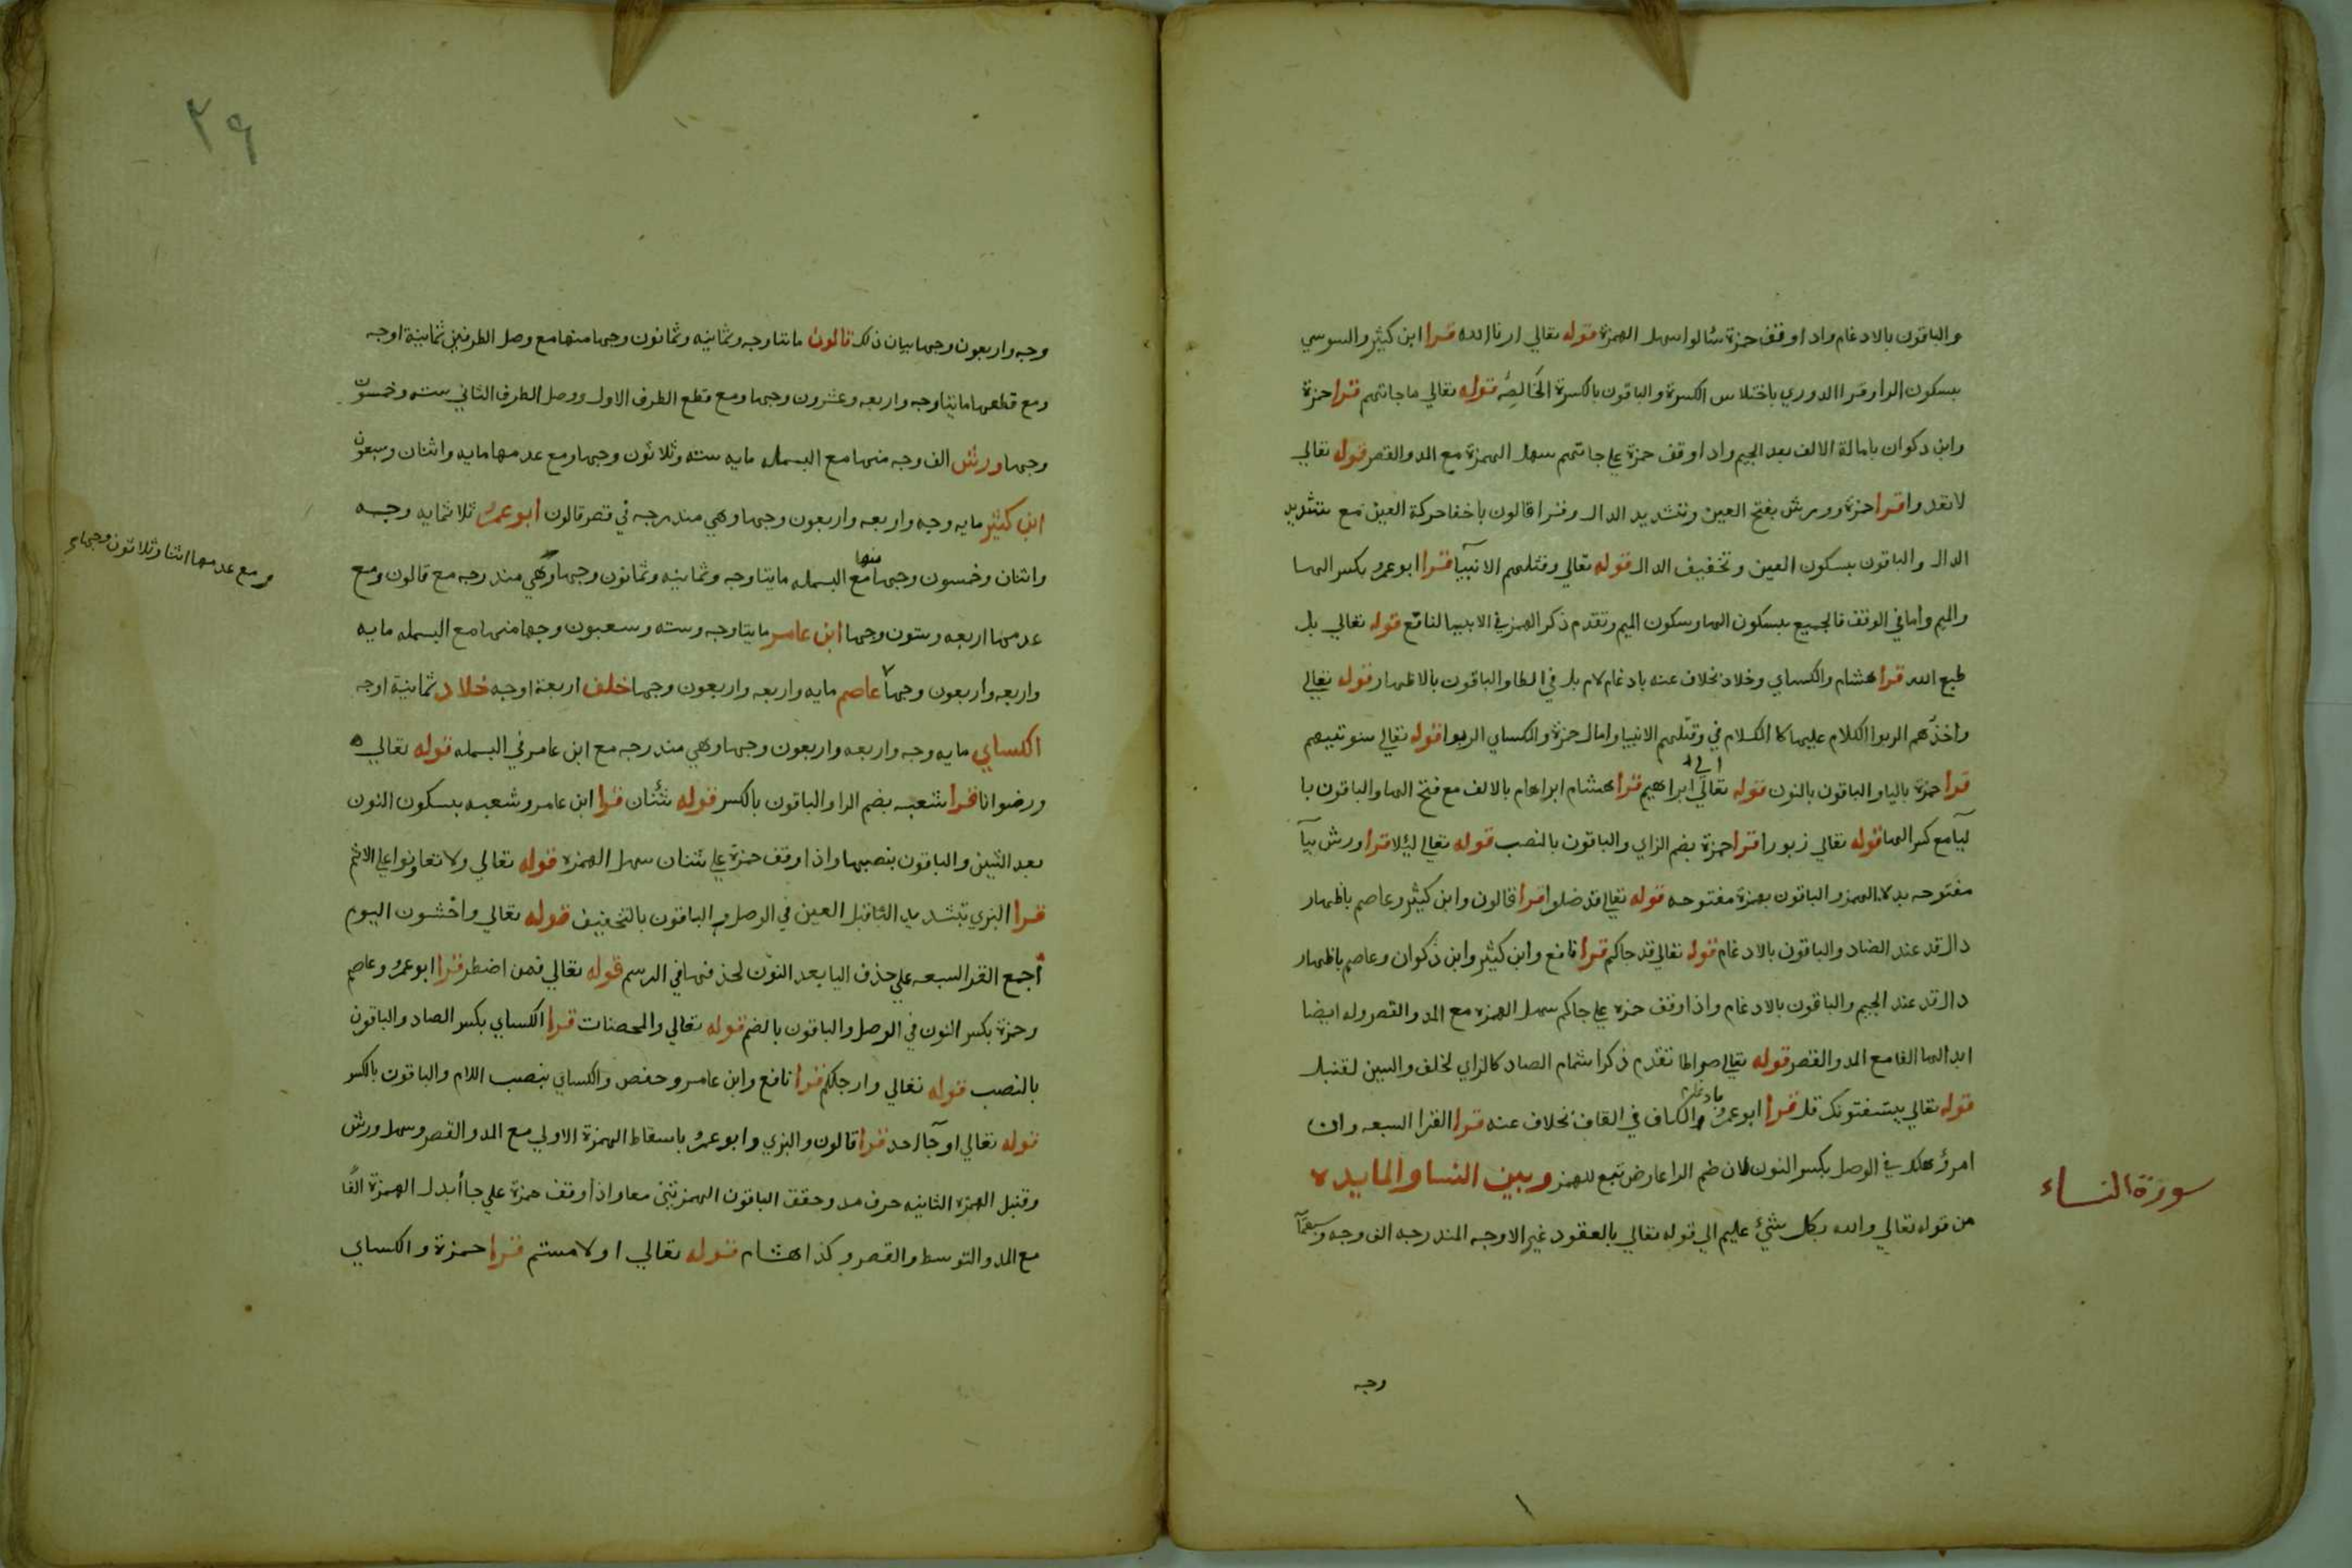 والباقون بالادغام واذا وقف حمزة سئالوا سهل الهمزة قوله تعالي ارنا الله قرا ابن كثير والسوسي
بسكون الرا وقرا الدوري باختلاس الكسرة والباقون بالكسرة الخالصه قوله تعالي ما جاتهم قرا حمزة
وابن دكوان بامالة الالف بعد الجيم واذا وقف حمزة علي جاتهم سهل الهمزة مع المد والقصر قوله تعالي
لا تعدوا قرا حمزة وورش بفتح العين وتشديد الدال وقرا قالون باخفا حركة العين مع تشديد
الدال والباقون بسكون العين وتخفيف الدال قوله تعالي وقتلهم الانبيآ قرا ابو عمرو بكسر الها
والميم واما في الوقف فالجميع بسكون الها وسكون الميم وتقدم ذكر الهمز في الانبيا لنافع قوله تعالي بل
طبع الله قرا هشام والكساي وخلاد بخلاف عنه بادغام لام بل في الطا والباقون بالاظهار قوله تعالي
واخذهم الربوا الكلام عليها كالكلام في وقتلهم الانبيا وامال حمزة والكساي الربوا قوله تعالي سنوتيهم
قرا حمزة باليا والباقون بالنون قوله تعالي الي ابراهيم قرا هشام ابراهام بالالف مع فتح الها والباقون با
ليآ مع كسر الها قوله تعالي زبورا قرا حمزة بضم الزاي والباقون بالنصب قوله تعالي ليلا قرا ورش بيآ
مفتوحه بدلا الهمز والباقون بهمزة مفتوحه قوله تعالي قد ضلوا قرا قالون وابن كثير وعاصم باظهار
دال قد عند الضاد والباقون بالادغام قوله تعالي قد جاكم قرا نافع وابن كثير وابن ذكوان وعاصم باظهار
دال قد عند الجيم والباقون بالادغام واذا وقف حمزه علي جاكم سهل الهمزه مع المد والقصر وله ايضا
ابدالها الفا مع المد والقصر قوله تعالي صراطا تقدم ذكر اشمام الصاد كالزاي لخلف والسين لقنبل
قوله تعالي يستفتونك قل قرا ابو عمرو بادغام الكاف في القاف بخلاف عنه قرا القرا السبعه وان
امرؤ هلك في الوصل بكسر النون لان ضم الرا عارض تبع للهمز وبين النسا والمايده
من قوله تعالي والله بكل شيئ عليم الي قوله تعالي بالعقود غير الاوجه المندرجه الف وجه وسبعمآ
سورة النساء
وجه
٣٩
وجه واربعون وجها بيان ذلك قالون مائتا وجه وثمانيه وثمانون وجها منها مع وصل الطرفين ثمانية اوجه
ومع قطعهما مايتا وجه واربعه وعشرون وجها ومع قطع الطرف الاول ووصل الطرف الثاني سته وخمسون
وجها ورش الف وجه منها مع البسمله مايه سته وثلاثون وجها ومع عدمها مايه واثنان وسبعون
ابن كثير مايه وجه واربعه واربعون وجها وهي مندرجه في قصر قالون ابو عمرو ثلاثمايه وجه
واثنان وخمسون وجها منها مع البسمله مايتا وجه وثمانيه وثمانون وجها وهي مندرجه مع قالون ومع
عدمها اربعه وستون وجها ابن عامر مايتا وجه وسته وسعبون وجها منها مع البسمله مايه
واربعه واربعون وجها عاصم مايه واربعه واربعون وجها خلف اربعة اوجه خلاد ثمانية اوجه
الكساي مايه وجه واربعه واربعون وجها وهي مندرجه مع ابن عامر في البسمله قوله تعالي
ورضوانا قرا شعبه بضم الرا والباقون بالكسر قوله شنئان قرا ابن عامر وشعبه بسكون النون
بعد الشين والباقون بنصبها واذا وقف حمزة علي شنان سهل الهمزه قوله تعالي ولا تعاونوا علي الاثم
قرا البزي بتشديد التا قبل العين في الوصل والباقون بالتخفيف قوله تعالي واخشون اليوم
اجمع القرا السبعه علي حذف اليا بعد النون لحذفها في الرسم قوله تعالي فمن اضطر قرا ابو عمرو وعاصم
وحمزة بكسر النون في الوصل والباقون بالضم قوله تعالي والمحصنات قرا الكساي بكسر الصاد والباقون
بالنصب قوله تعالي وارجلكم قرا نافع وابن عامر وحفص والكساي بنصب اللام والباقون بالكسر
قوله تعالي او جآ احد قرا قالون والبزي وابو عمرو باسقاط الهمزة الاولي مع المد والقصر وسهل ورش
وقنبل الهمزه الثانيه حرف مد وحقق الباقون الهمزتين معا واذا وقف حمزة علي جا أبدل الهمزة الفا
مع المد والتوسط والقصر وكذا هشام قوله تعالي او لامستم قرا حمزة والكساي
ومع عدمها اثنا وثلاثون وجها